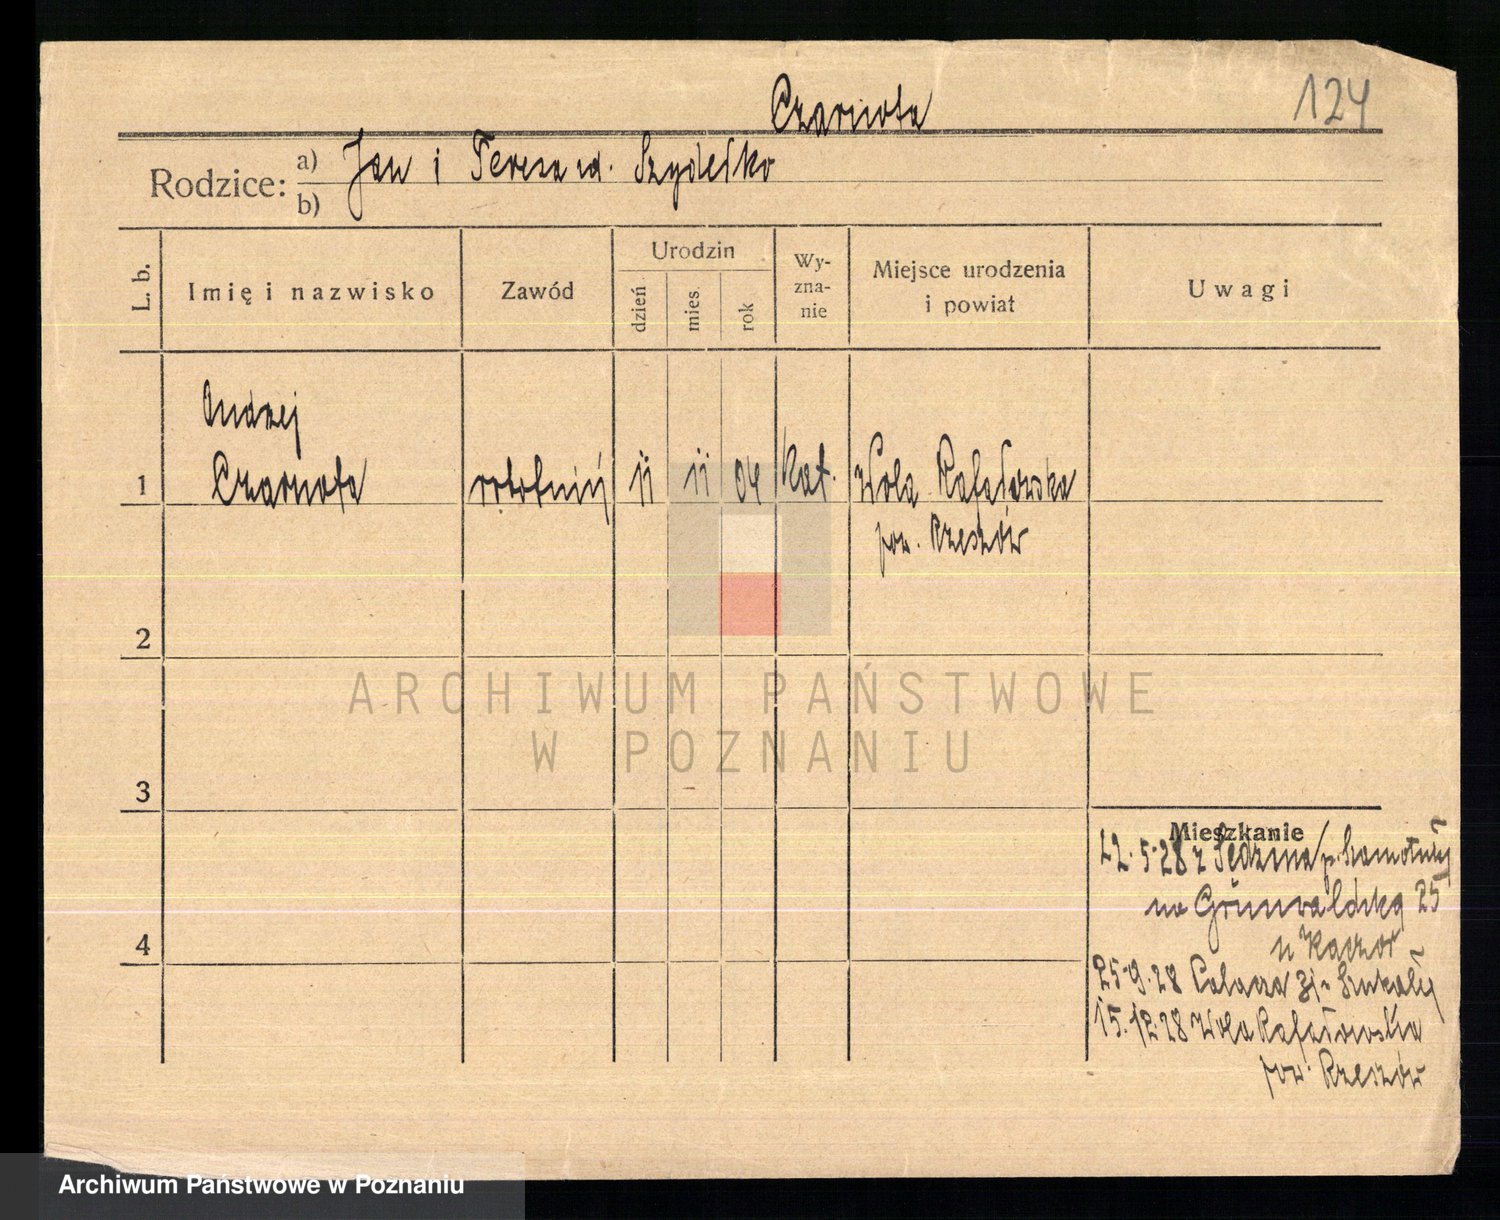 Czarnota
124
Rodzice: a) Jan i Teresa zd. Szydełko
b)
L. b. Imię i nazwisko Zawód Urodzin dzień mies. rok Wy-zna-nie Miejsce urodzenia i powiat Uwagi
Andrzej
1 Czarnota robotnik 11 11 04 kat. Wola Rafałowska
pow. Rzeszów
2
3
4
Mieszkanie
22.5.28 z Sędzina / p. Szamotuły
na Grunwaldzką 25
u Kaczor
25.9.28 21 Szukały
15.12.28 Wola Rafałowska
pow. Rzeszów
ARCHIWUM PAŃSTWOWE
W POZNANIU
Archiwum Państwowe w Poznaniu